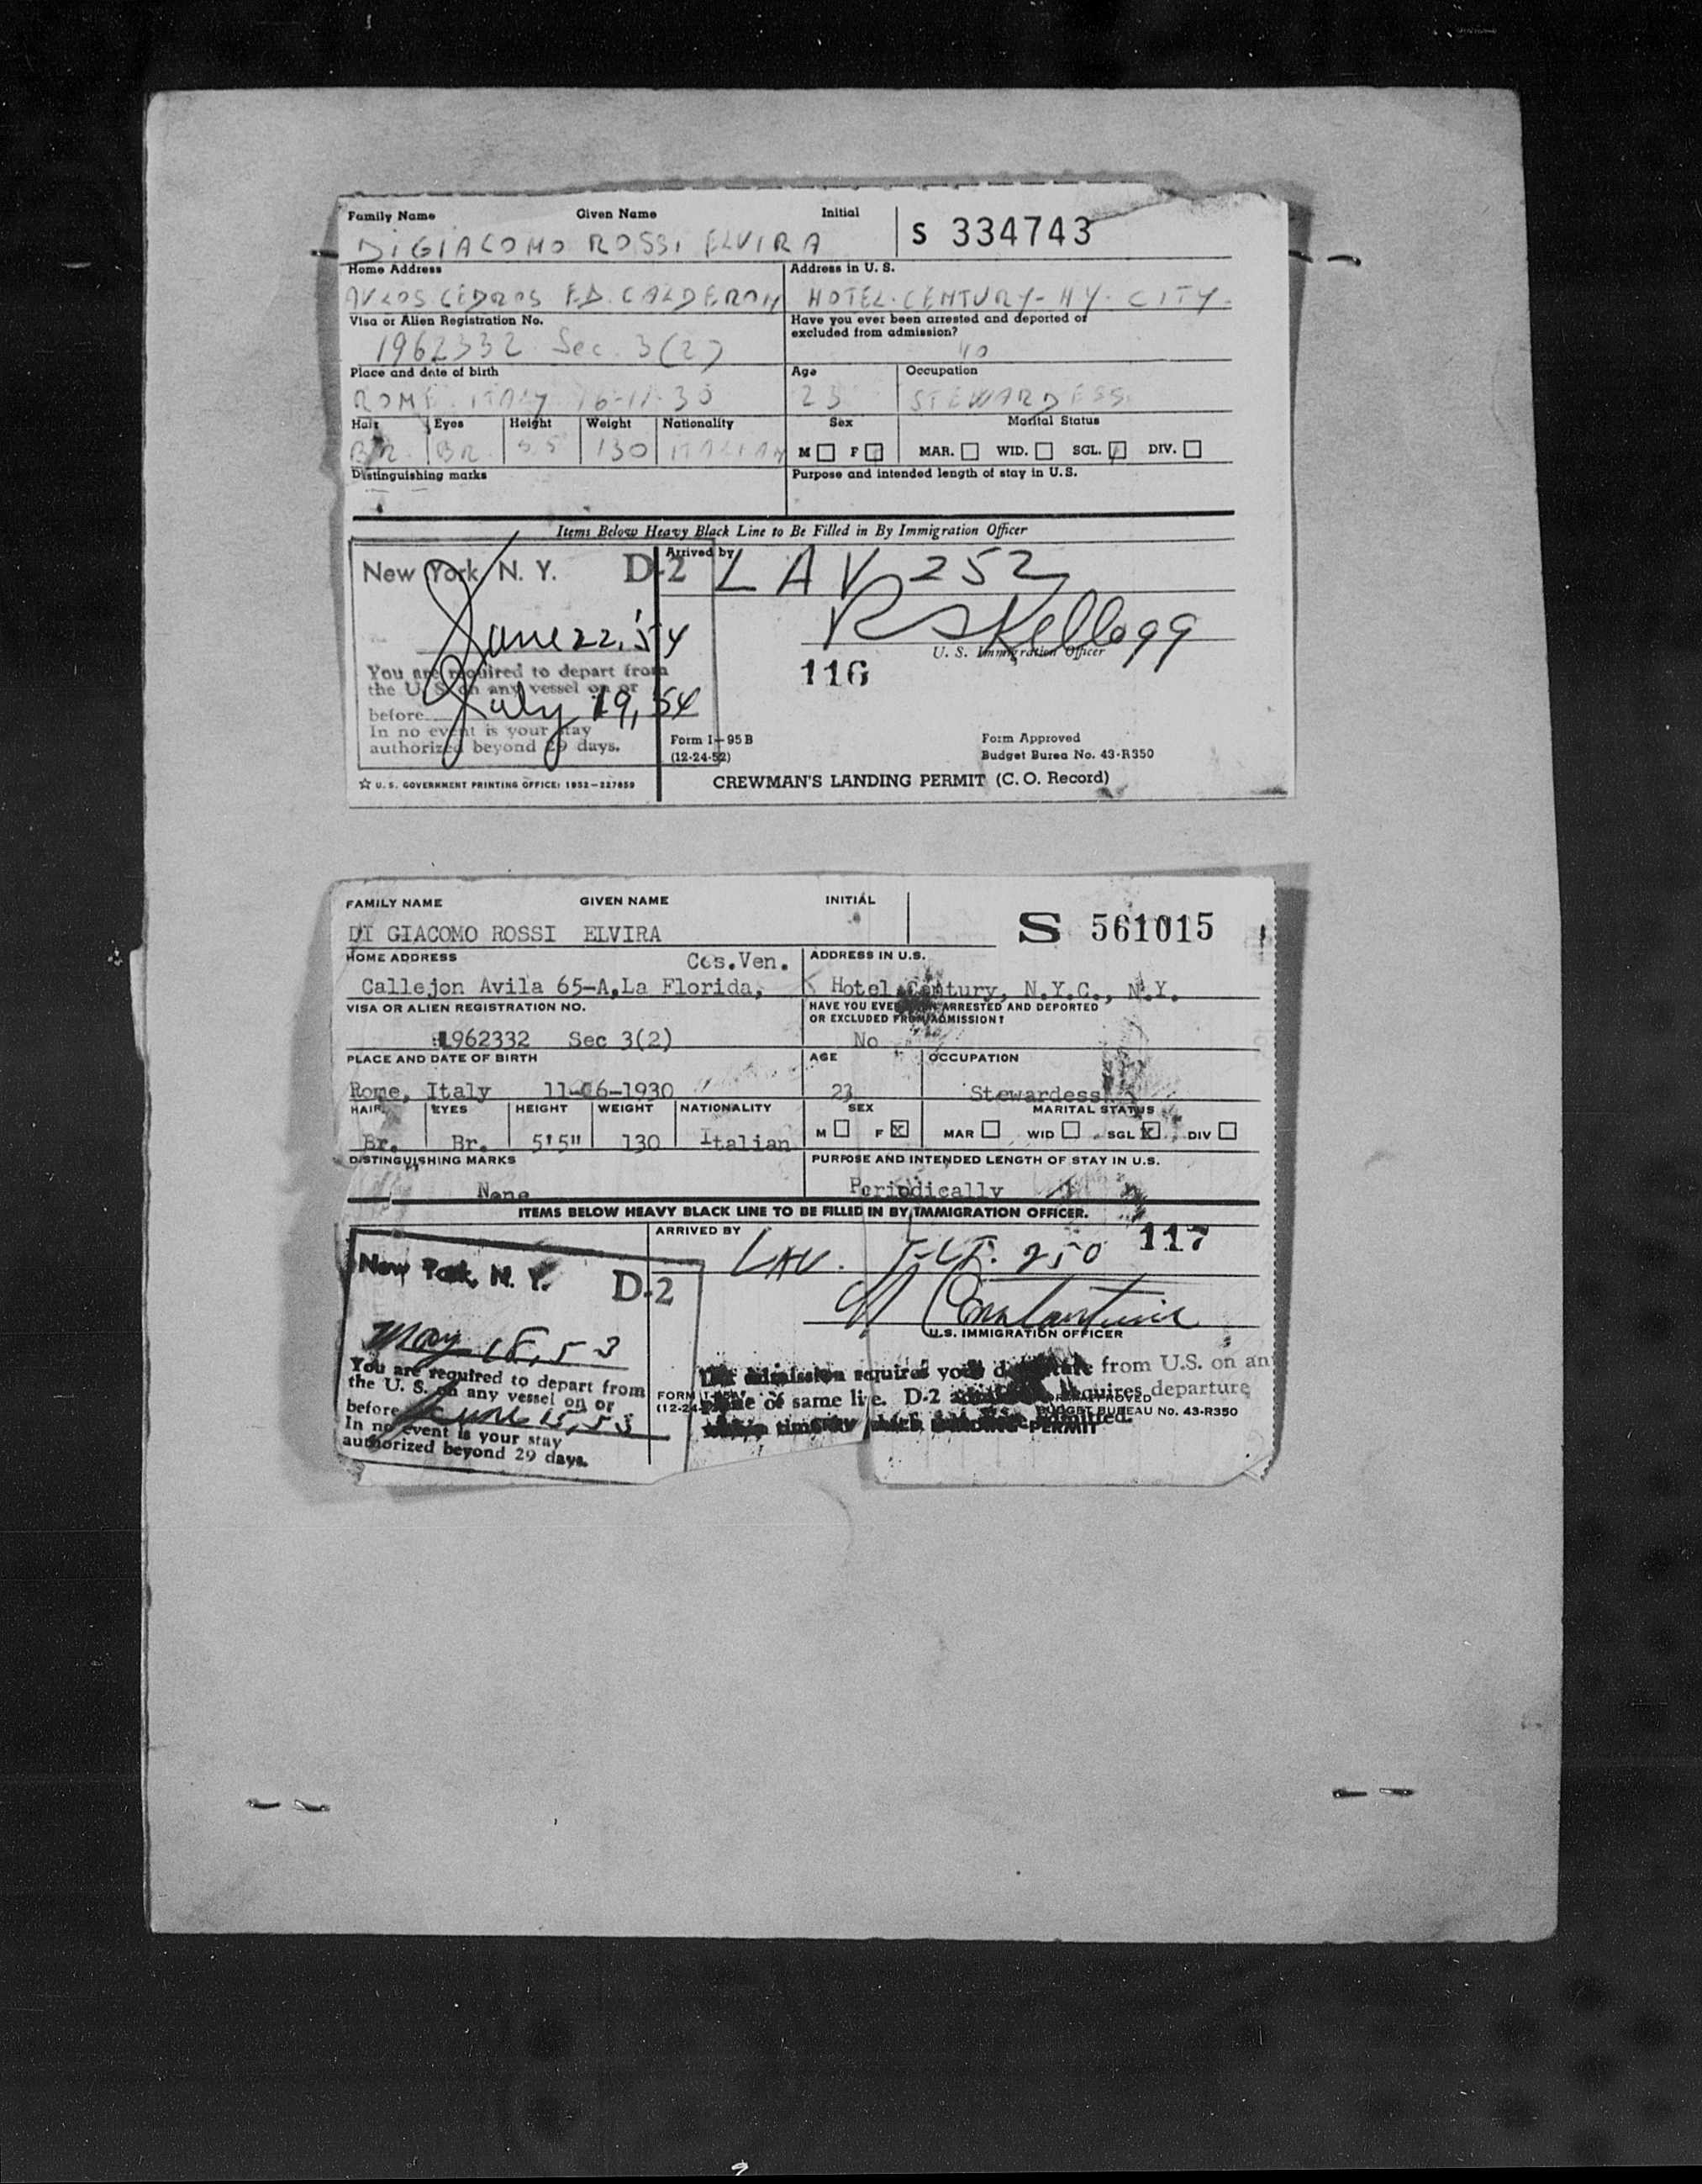 Family Name Given Name Initial
S 334743
DI GIACOMO ROSSI ELVIRA
Home Address Address in U. S.
AV LOS CEDROS ED. CALDERON HOTEL CENTURY - NY. CITY.
Visa or Alien Registration No. Have you ever been arrested and deported or
excluded from admission?
1962332 Sec. 3(2) NO
Place and date of birth Age Occupation
ROME. ITALY 16-11-30 23 STEWARDESS
Hair Eyes Height Weight Nationality Sex Marital Status
BR. BR. 5.5 130 ITALIAN M F MAR. WID. SGL. DIV.
Distinguishing marks Purpose and intended length of stay in U.S.
Items Below Heavy Black Line to Be Filled in By Immigration Officer
New York, N. Y. D-2 Arrived by LAV 252
June 22, '54 RSKellogg
U. S. Immigration Officer
You are required to depart from 116
the U. S. on any vessel on or
before July 19, '54
In no event is your stay
authorized beyond 29 days.
Form I-95 B Form Approved
(12-24-52) Budget Burea No. 43-R350
☆ U. S. GOVERNMENT PRINTING OFFICE: 1952-227859 CREWMAN'S LANDING PERMIT (C. O. Record)
FAMILY NAME GIVEN NAME INITIAL
S 561015
DI GIACOMO ROSSI ELVIRA
HOME ADDRESS Ccs.Ven. ADDRESS IN U.S.
Callejon Avila 65-A,La Florida, Hotel Century, N.Y.C., N.Y.
VISA OR ALIEN REGISTRATION NO. HAVE YOU EVER BEEN ARRESTED AND DEPORTED
OR EXCLUDED FROM ADMISSION?
1962332 Sec 3(2) No
PLACE AND DATE OF BIRTH AGE OCCUPATION
Rome, Italy 11-16-1930 23 Stewardess
HAIR EYES HEIGHT WEIGHT NATIONALITY SEX MARITAL STATUS
Br. Br. 5'5" 130 Italian M F X MAR WID SGL X DIV
DISTINGUISHING MARKS PURPOSE AND INTENDED LENGTH OF STAY IN U.S.
None Periodically
ITEMS BELOW HEAVY BLACK LINE TO BE FILLED IN BY IMMIGRATION OFFICER.
ARRIVED BY LAV. 250 117
New York, N. Y. D-2
U.S. IMMIGRATION OFFICER
May 18, 53
You are required to depart from
the U. S. on any vessel on or
before June 15, 53
In no event is your stay
authorized beyond 29 days.
admission requires your from U.S. on an
plane of same line. D-2 requires departure
BUDGET BUREAU No. 43-R350
time admitted.
PERMIT
9